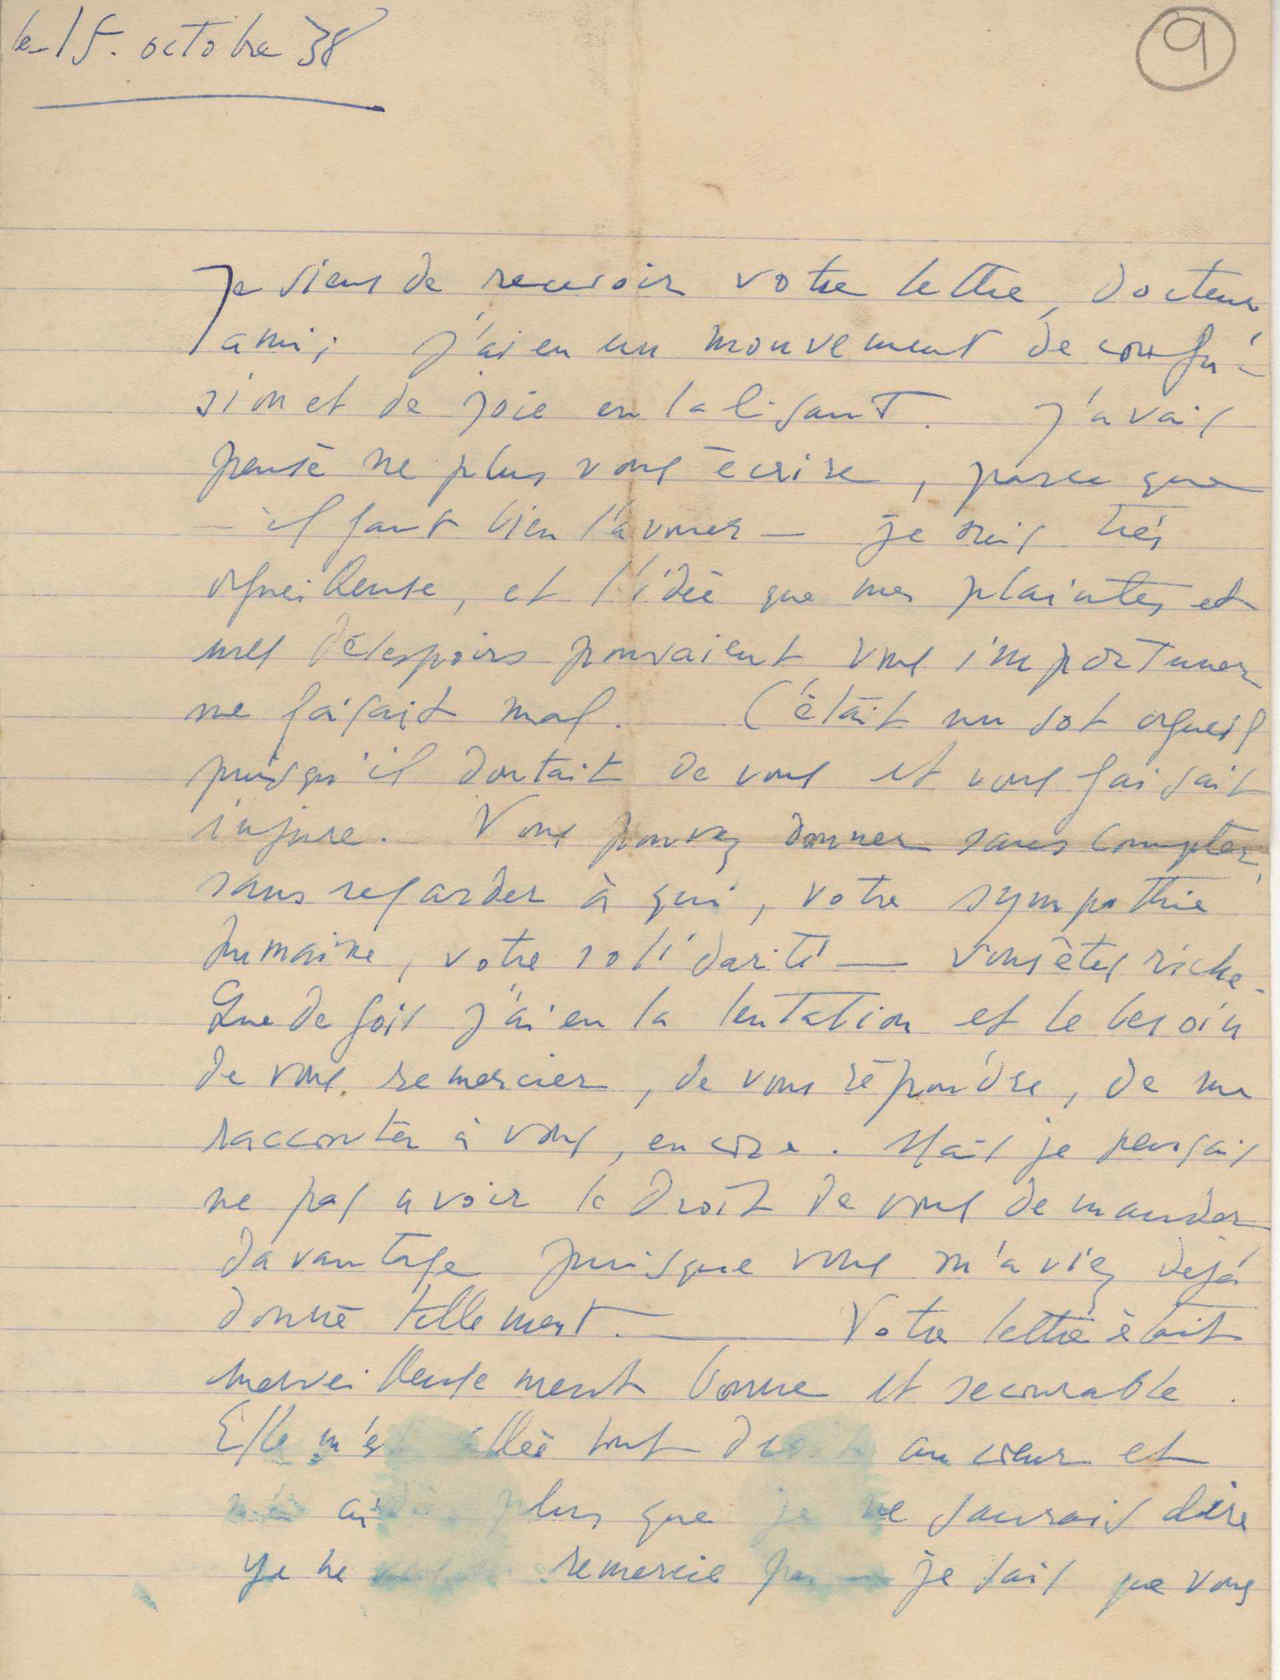 le 15. octobre 38
9
Je viens de recevoir votre lettre, docteur
ami; j'ai eu un mouvement de confu-
sion et de joie en la lisant. J'avais
pensé ne plus vous écrire, parce que
— il faut bien l'avouer — je suis très
orgueilleuse, et l'idée que mes plaintes et
mes désespoirs pouvaient vous importuner
me faisait mal. C'était un sot orgueil
puisqu'il doutait de vous et vous faisait
injure. Vous pouvez donner sans compter,
sans regarder à qui, votre sympathie
humaine, votre solidarité — vous êtes riche.
Que de fois j'ai eu la tentation et le besoin
de vous remercier, de vous répondre, de me
racconter à vous, encore. Mais je pensais
ne pas avoir le droit de vous demander
davantage puisque vous m'aviez déjà
donné tellement. — Votre lettre était
merveilleusement bonne et secourable.
Elle m'est allée tout droit au cœur et
plus que je ne saurais dire
Je ne remercie pas — je sais que vous